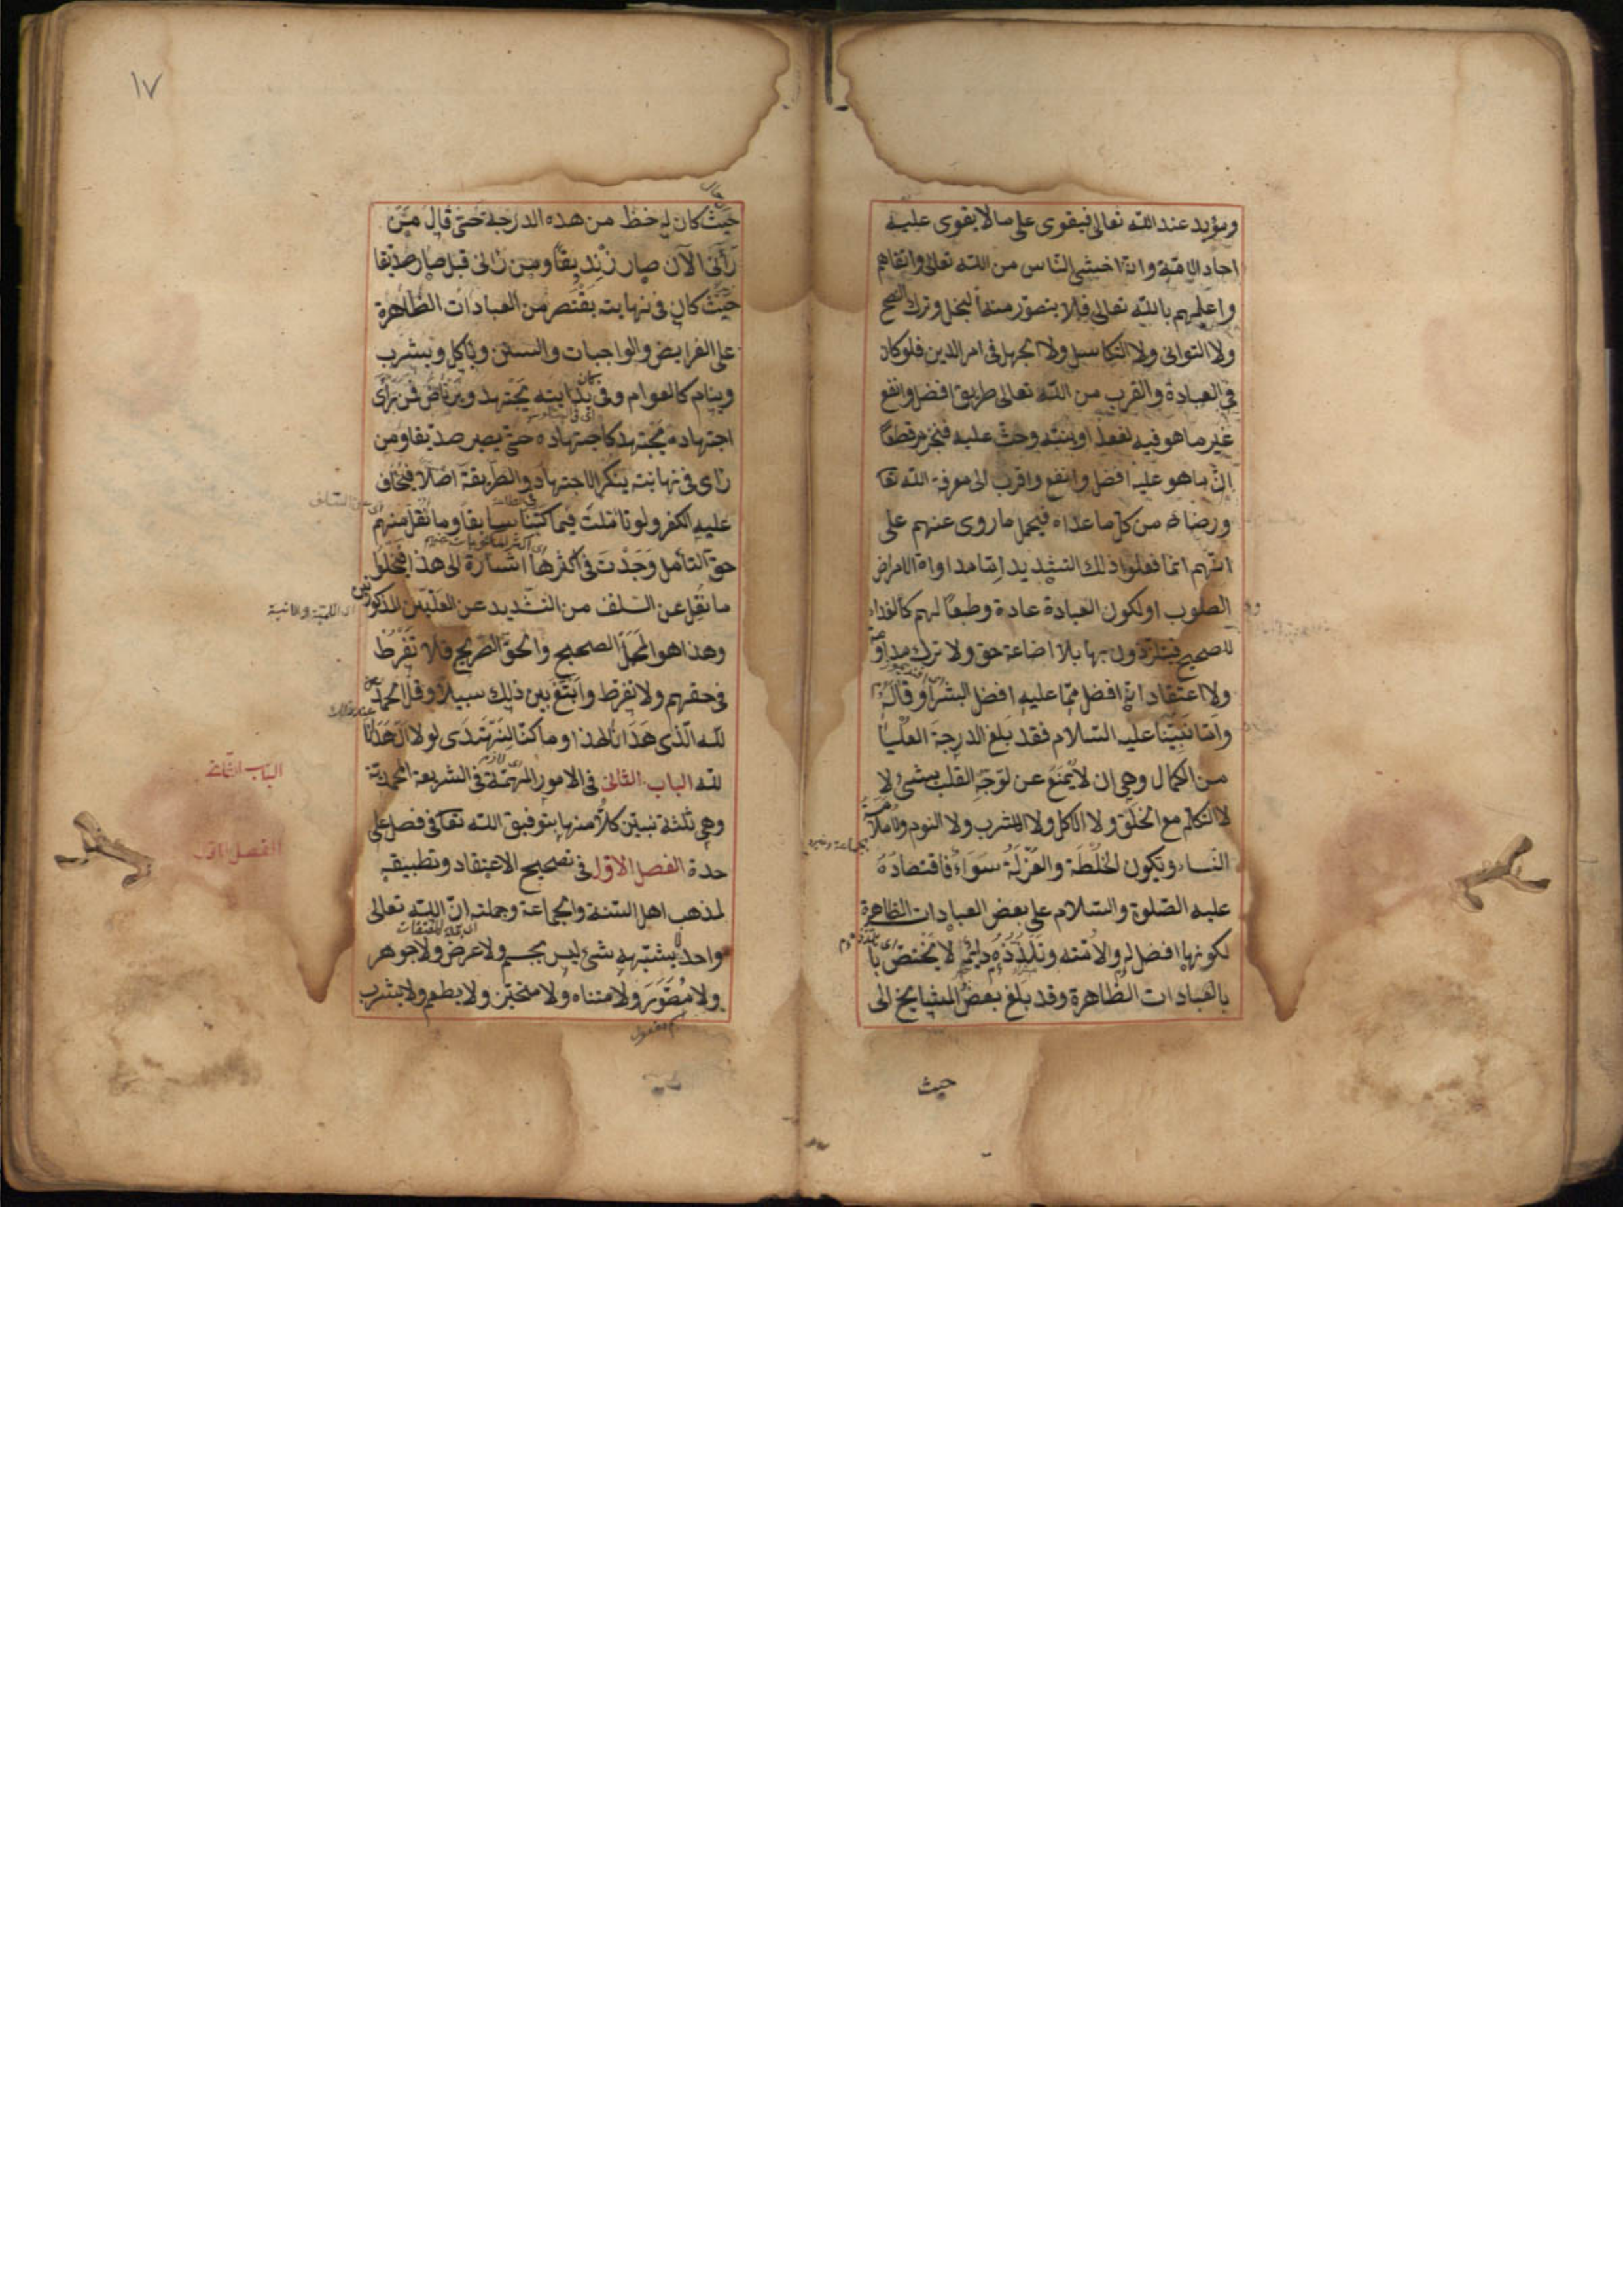 ومؤيد عند الله تعالى فيقوى على ما لا يقوى عليه
احاد الامة وانه اخشى الناس من الله تعالى واتقاهم
واعلمهم بالله تعالى فلا يتصور منه البخل وترك النصح
ولا التوانى ولا التكاسل ولا الجهل فى امر الدين فلو كان
فى العبادة والقرب من الله تعالى طريق افضل وانفع
غير ما هو فيه لفعله او بينه وحث عليه فنجزم قطعا
ان ما هو عليه افضل وانفع واقرب الى معرفة الله تعا
ورضاه من كل ما عداه فيحمل ما روى عنهم على
انهم انما فعلوا ذلك التشديد اما مداواة لامراض
القلوب او لكون العبادة عادة وطبعا لهم كالغذاء
للصحيح فيتلذذون بها بلا اضاعة حق ولا ترك مداومة
ولا اعتقاد انه افضل مما عليه افضل البشر او قاله
واما نبينا عليه السلام فقد بلغ الدرجة العليا
من الكمال وهى ان لا يمنع عن توجه القلب بشئ لا
لا التكلم مع الخلق ولا الاكل ولا الشرب ولا النوم ولا ملامسة
النساء وتكون الخلطة والعزلة سواء فاقتصاده
عليه الصلوة والسلام على بعض العبادات الظاهرة
لكونها افضل له ولامته وتلذذه دائم لا يختص با
بالعبادات الظاهرة وقد بلغ بعض المشايخ الى
حيث
١٧
حيث كان له حظ من هذه الدرجة حتى قال من
رأنى الآن صار زنديقا ومن رانى قبل صار صديقا
حيث كان فى نهايته يقتصر من العبادات الظاهرة
على الفرايض والواجبات والسنن وياكل ويشرب
وينام كالعوام وفى بدايته يجتهد ويرتاض فمن رأى
اجتهاده يجتهد كاجتهاده حتى يصير صديقا ومن
راى فى نهايته ينكر الاجتهاد والطريقة اصلا فيخاف
عليه الكفر ولو تاملت فيما كتبنا سابقا وما نقل منهم
حق التأمل وجدت فى اكثرها اشارة الى هذا فتحملوا
ما نقل عن السلف من التشديد عن العلتين المذكورتين
وهذا هو المحمل الصحيح والحق الصريح فلا تفرط
فى حقهم ولا تفرط وابتغ بين ذلك سبيلا وقل الحمد
لله الذى هدانا لهذا وما كنا لنهتدى لولا ان هدانا
الله الباب الثانى فى الامور المهمة فى الشريعة المحمدية
وهى ثلثة نبين كلا منها بتوفيق الله تعا فى فصل على
حدة الفصل الاول فى تصحيح الاعتقاد وتطبيقه
لمذهب اهل السنة والجماعة وجملته ان الله تعالى
واحد لا يشبهه شئ ليس بجسم ولا عرض ولا جوهر
ولا مصور ولا متناه ولا متحيز ولا يطعم ولا يشرب
اسم مفعول
الباب الثانى
الفصل الاول